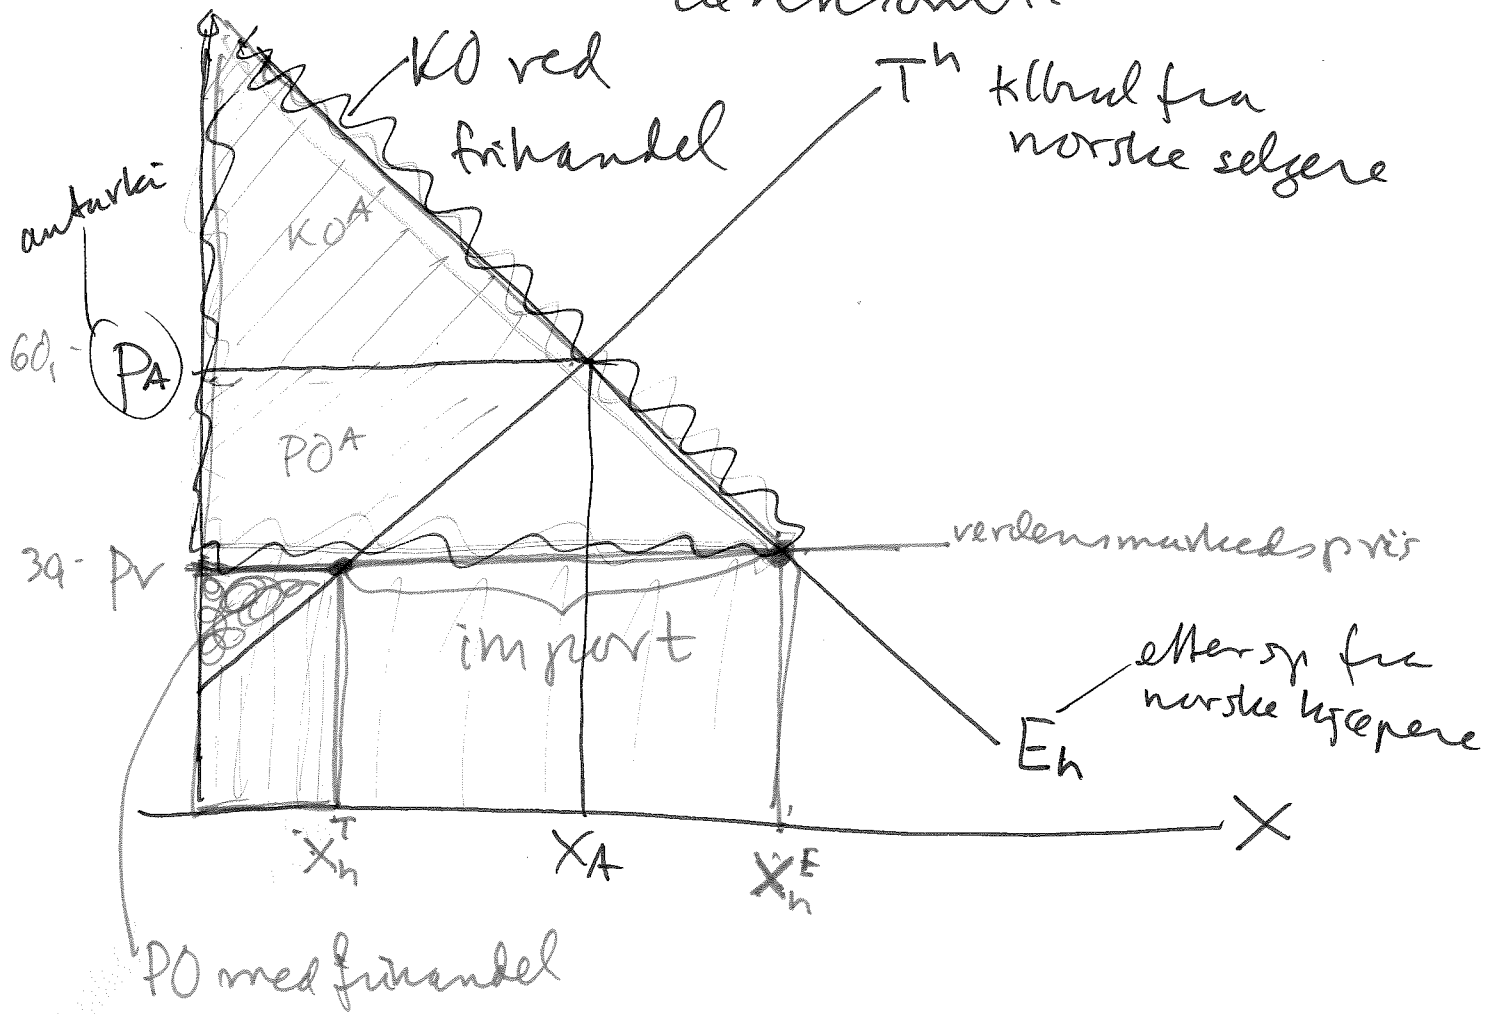 KO ved
frihandel
Tʰ tilbud fra
norske selgere
autarki
KOᴬ
60,-
PA
POᴬ
30,- Pv
verdensmarkedspris
import
ettersp fra
norske kjøpere
Eh
XhT
XA
XhE
X
PO med frihandel